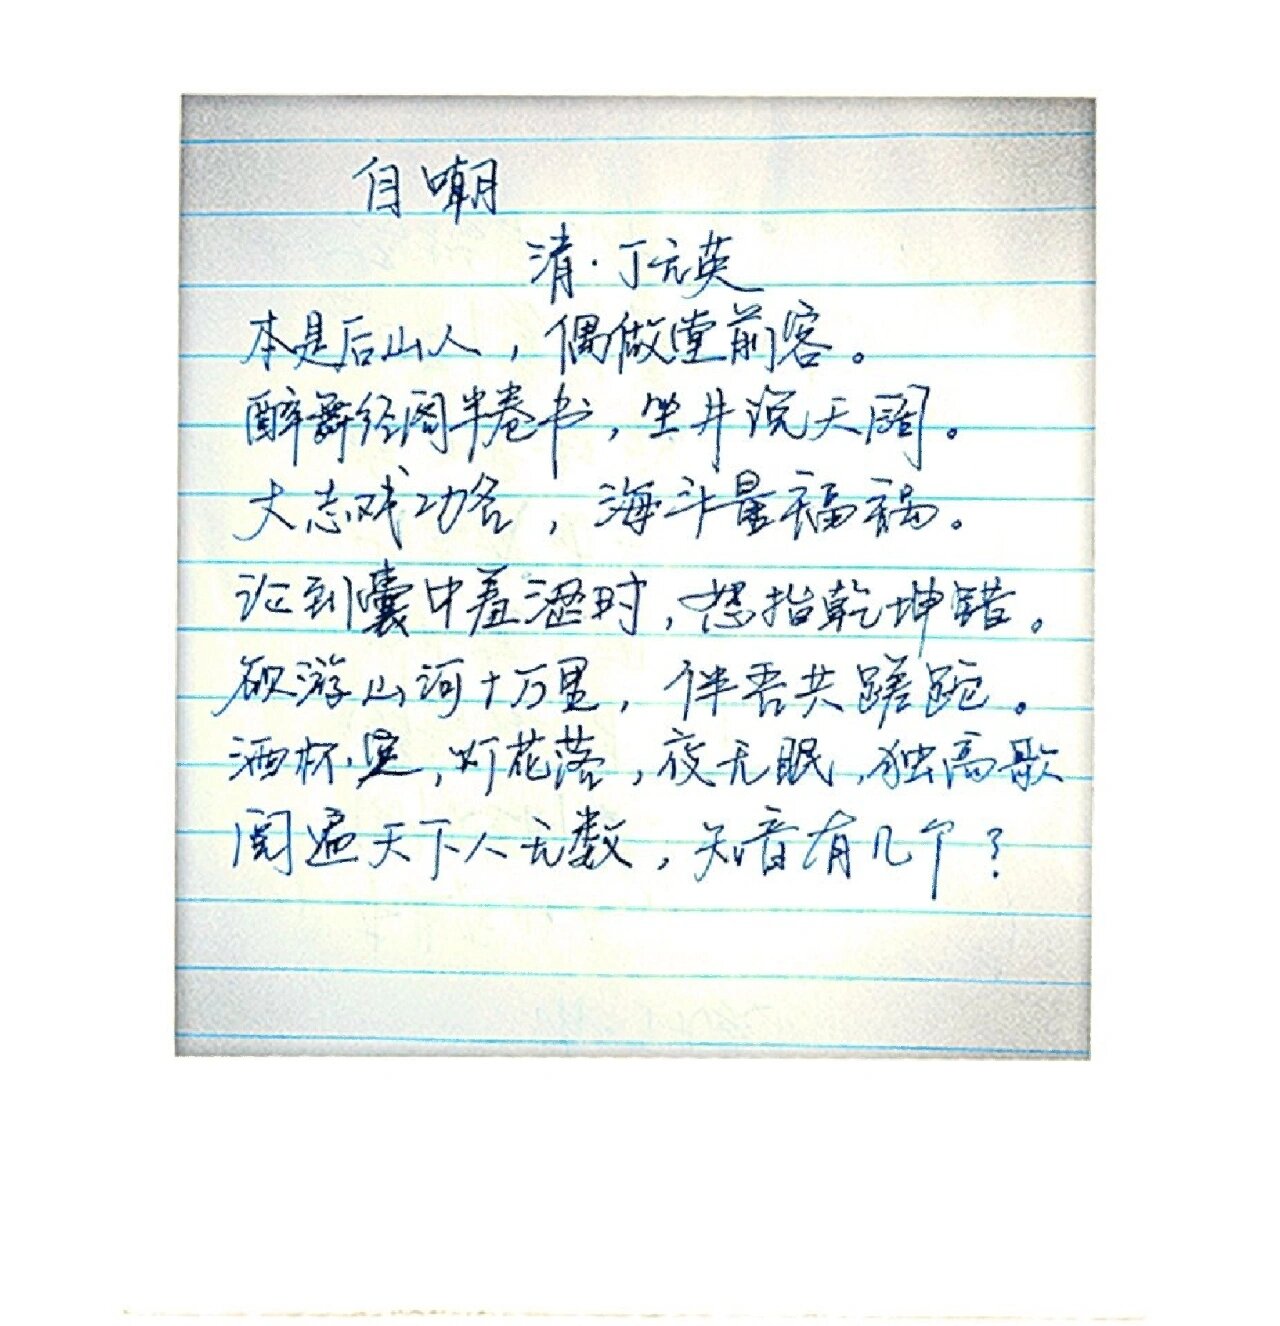 自嘲
清·丁元英
本是后山人，偶做堂前客。
醉舞经阁半卷书，坐井说天阔。
大志戏功名，海斗量福祸。
论到囊中羞涩时，怒指乾坤错。
欲游山河十万里，伴吾共蹉跎。
酒杯空，灯花落，夜无眠，独高歌
阅遍天下人无数，知音有几个？